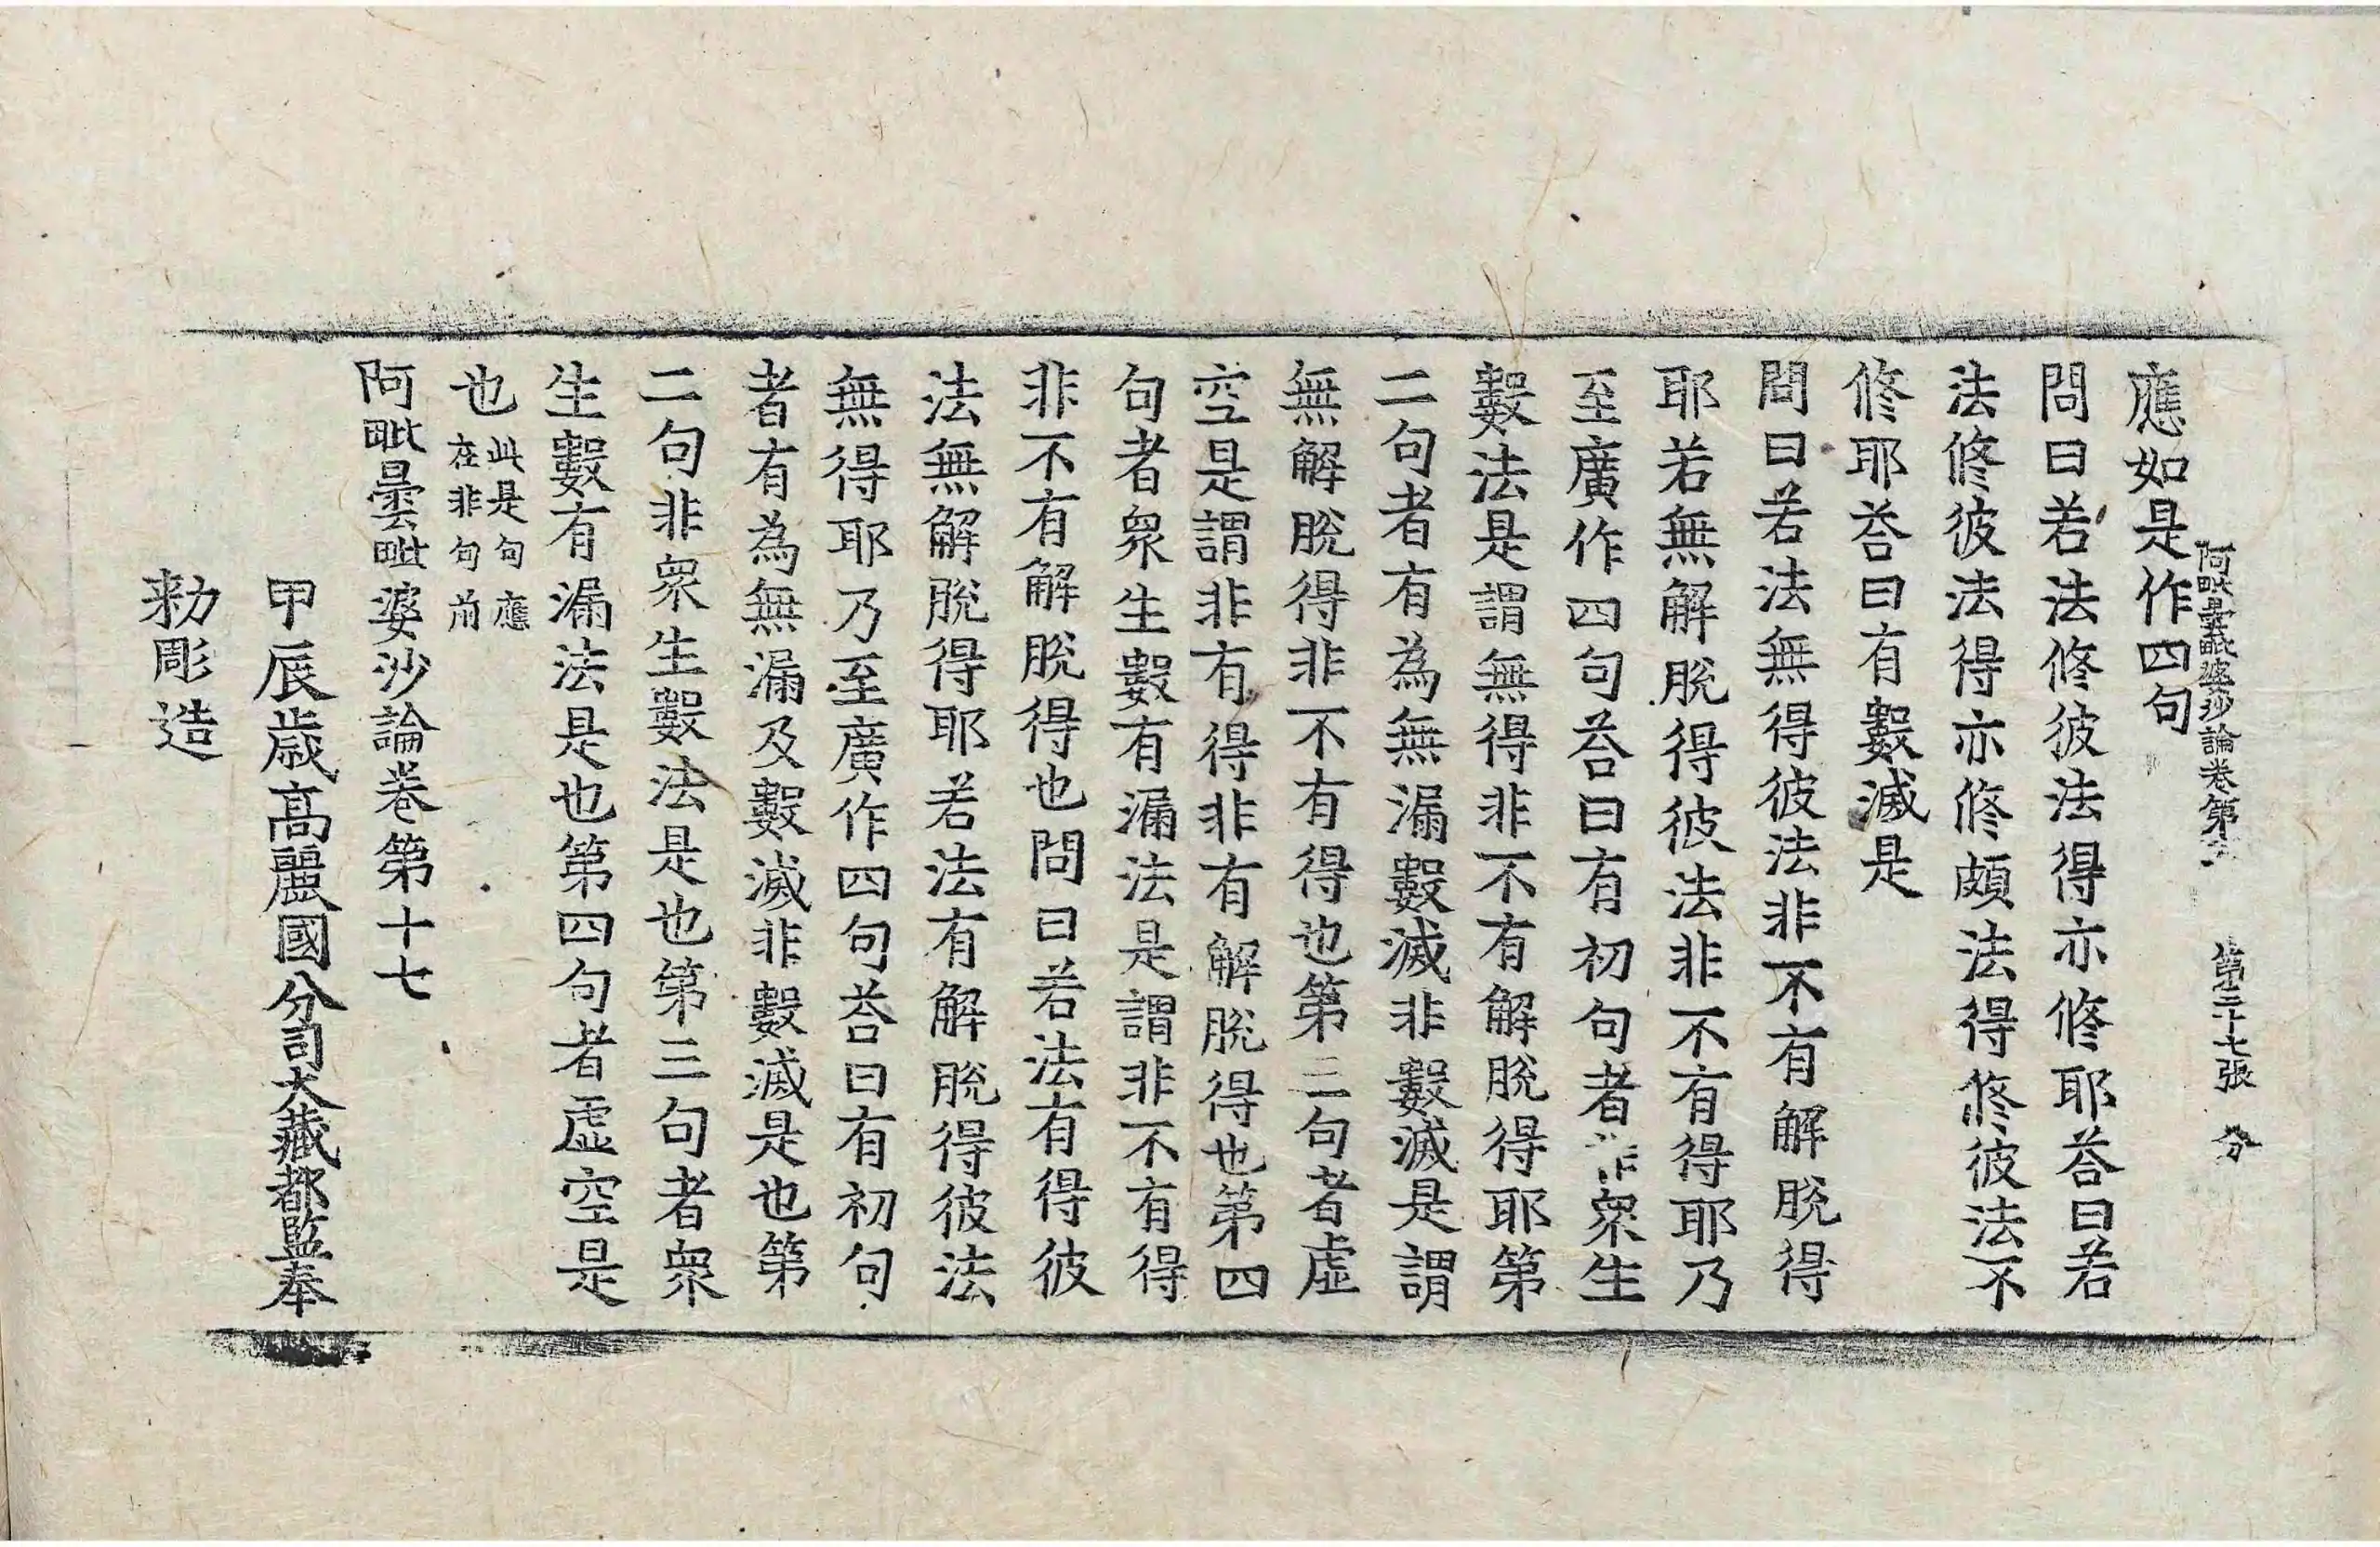 阿毗曇毗婆沙論卷第 第二十七張 分
應如是作四句
問曰若法修彼法得亦修耶荅曰若
法修彼法得亦修頗法得修彼法不
修耶荅曰有數滅是
問曰若法無得彼法非不有解脫得
耶若無解脫得彼法非不有得耶乃
至廣作四句荅曰有初句者非衆生
數法是謂無得非不有解脫得耶第
二句者有為無漏數滅非數滅是謂
無解脫得非不有得也第三句者虛
空是謂非有得非有解脫得也第四
句者衆生數有漏法是謂非不有得
非不有解脫得也問曰若法有得彼
法無解脫得耶若法有解脫得彼法
無得耶乃至廣作四句荅曰有初句
者有為無漏及數滅非數滅是也第
二句非衆生數法是也第三句者衆
生數有漏法是也第四句者虛空是
也此是句應
在非句前
阿毗曇毗婆沙論卷第十七
甲辰歲高麗國分司大藏都監奉
勑彫造